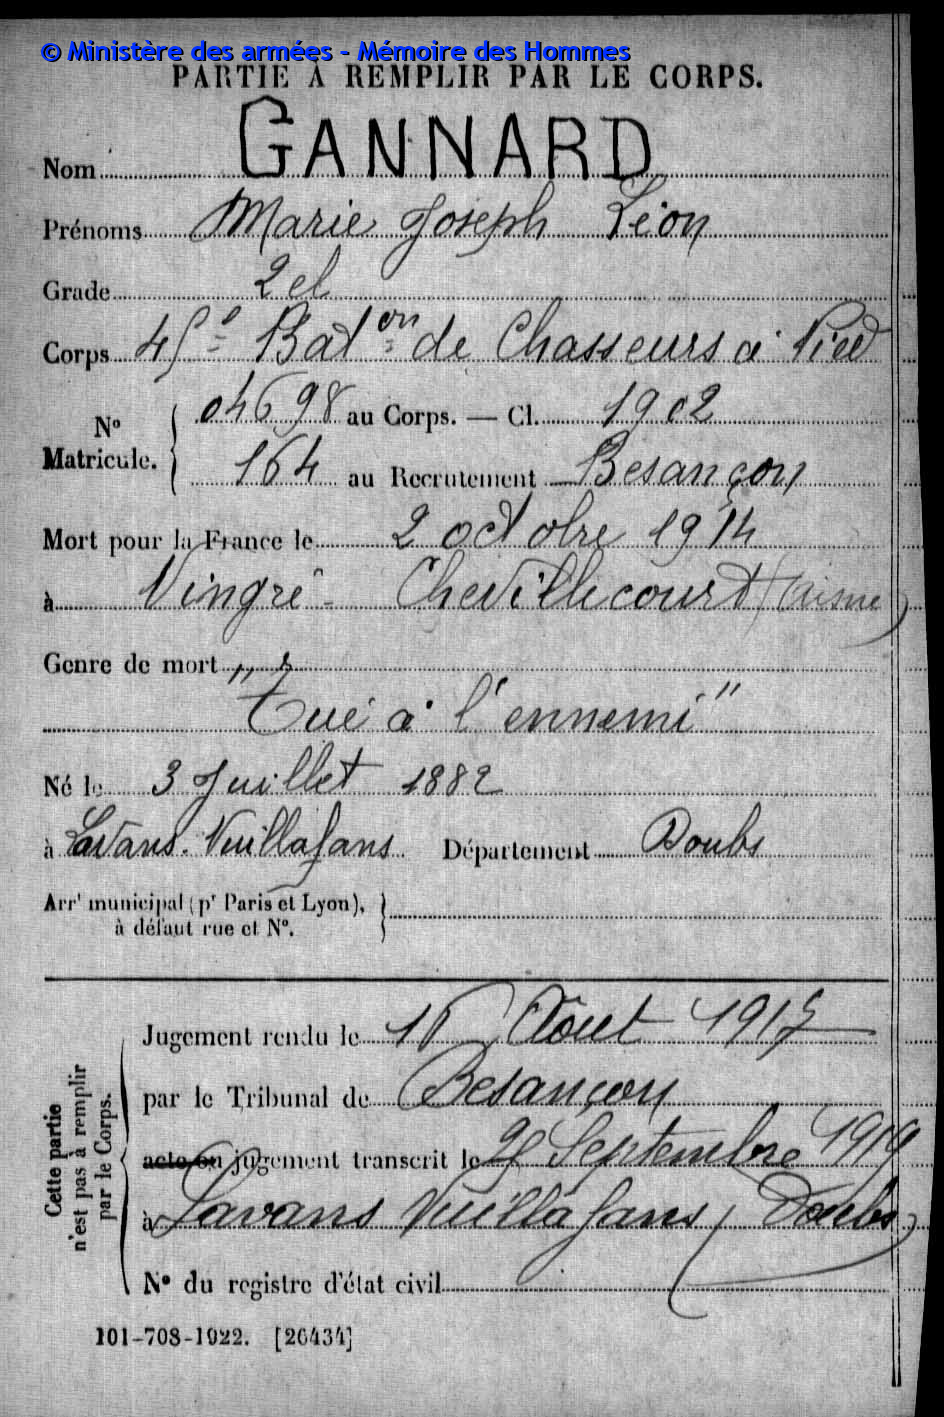 © Ministère des armées - Mémoire des Hommes
PARTIE À REMPLIR PAR LE CORPS.
Nom GANNARD
Prénoms Marie Joseph Léon
Grade 2 cl
Corps 45e Baton de Chasseurs à Pied
No Matricule. { 04698 au Corps. — Cl. 1902
164 au Recrutement Besançon
Mort pour la France le 2 octobre 1914
à Vingré - Chevillecourt (Aisne)
Genre de mort
"Tué à l'ennemi"
Né le 3 Juillet 1882
à Lavans-Vuillafans Département Doubs
Arrt municipal (pr Paris et Lyon),
à défaut rue et No.
Cette partie
n'est pas à remplir
par le Corps.
Jugement rendu le 16 Août 191
par le Tribunal de Besançon
acte ou jugement transcrit le Septembre 1919
à Lavans Vuillafans (Doubs)
No du registre d'état civil
101-708-1922. [26434]